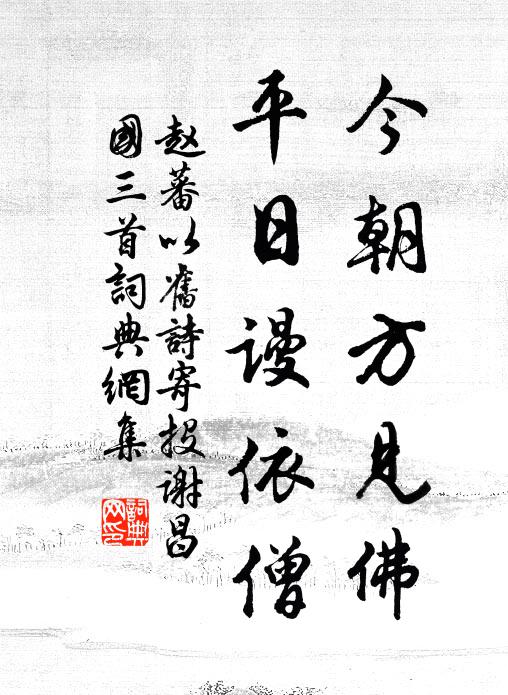 今朝方見佛
平日謾依僧
赵蕃以舊詩寄投謝昌
國三首詞典網集
詞典网印